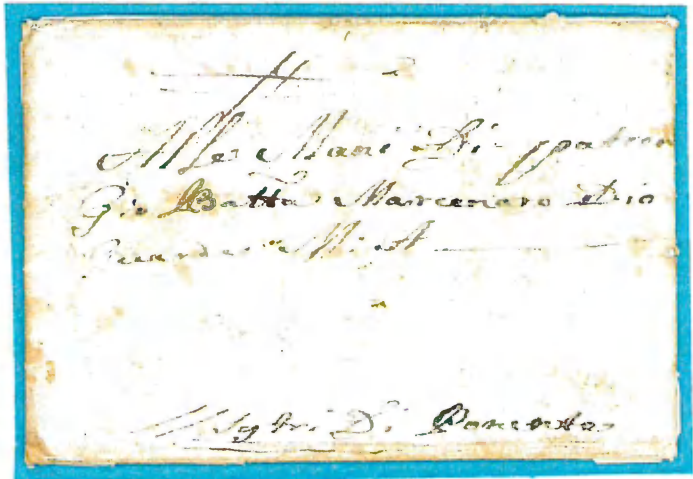 Alle Mani Di patron
Gio Batta Marcenaro Dio
Guarde
Di Ponente